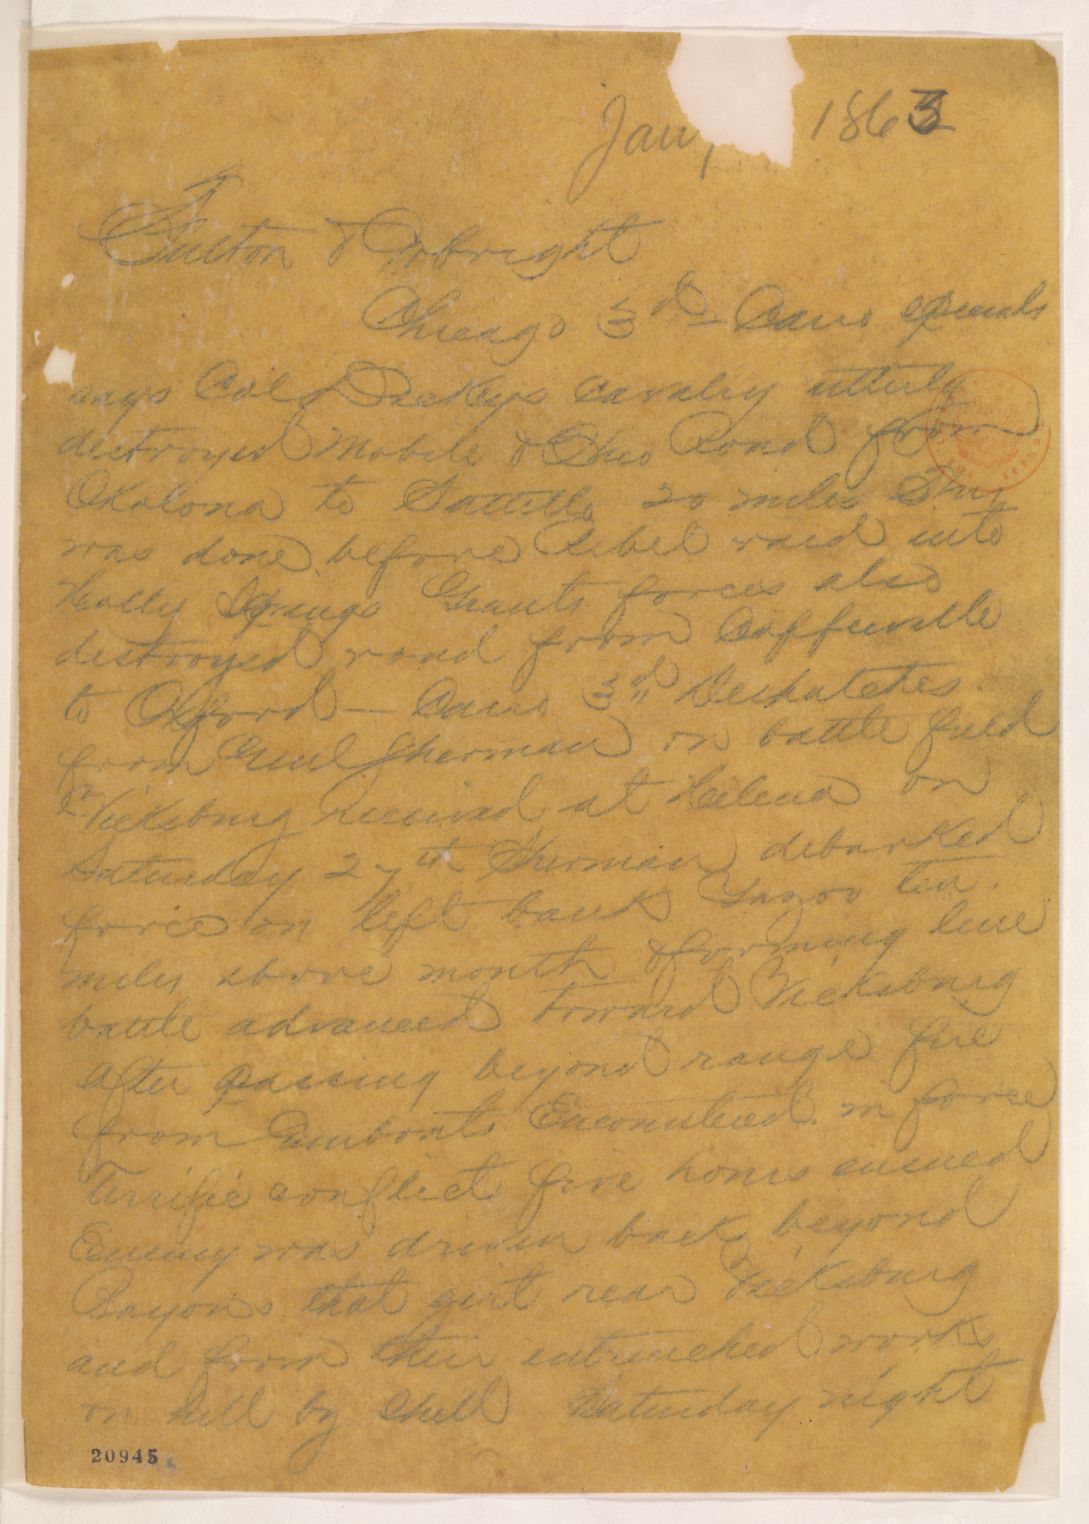 Jany 1863
Fulton & Gobright
Chicago 3d – Cairo specials
says Col Dickeys cavalry utterly
destroyed Mobile & Ohio Road from
Okolona to Saltillo 20 miles This
was done before Rebel raid into
Holly Springs Grants forces also
destroyed road from Coffeeville
to Oxford — Cairo 3d Despatches
from Genl Sherman on battle field
Vicksburg received at Helena on
Saturday 27th Sherman debarked
force on left bank Yazoo ten
miles above mouth & forming line
battle advanced toward Vicksburg
After passing beyond range fire
from Gunboats Encountered in force
Terrific conflict five hours ensued
Enemy was driven back beyond
Bayous that girt rear Vicksburg
and from their entrenched works
on hill by shell Saturday night
20945